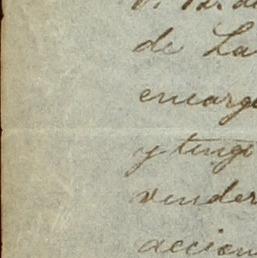 de La
encarg
y teng
vender
accion